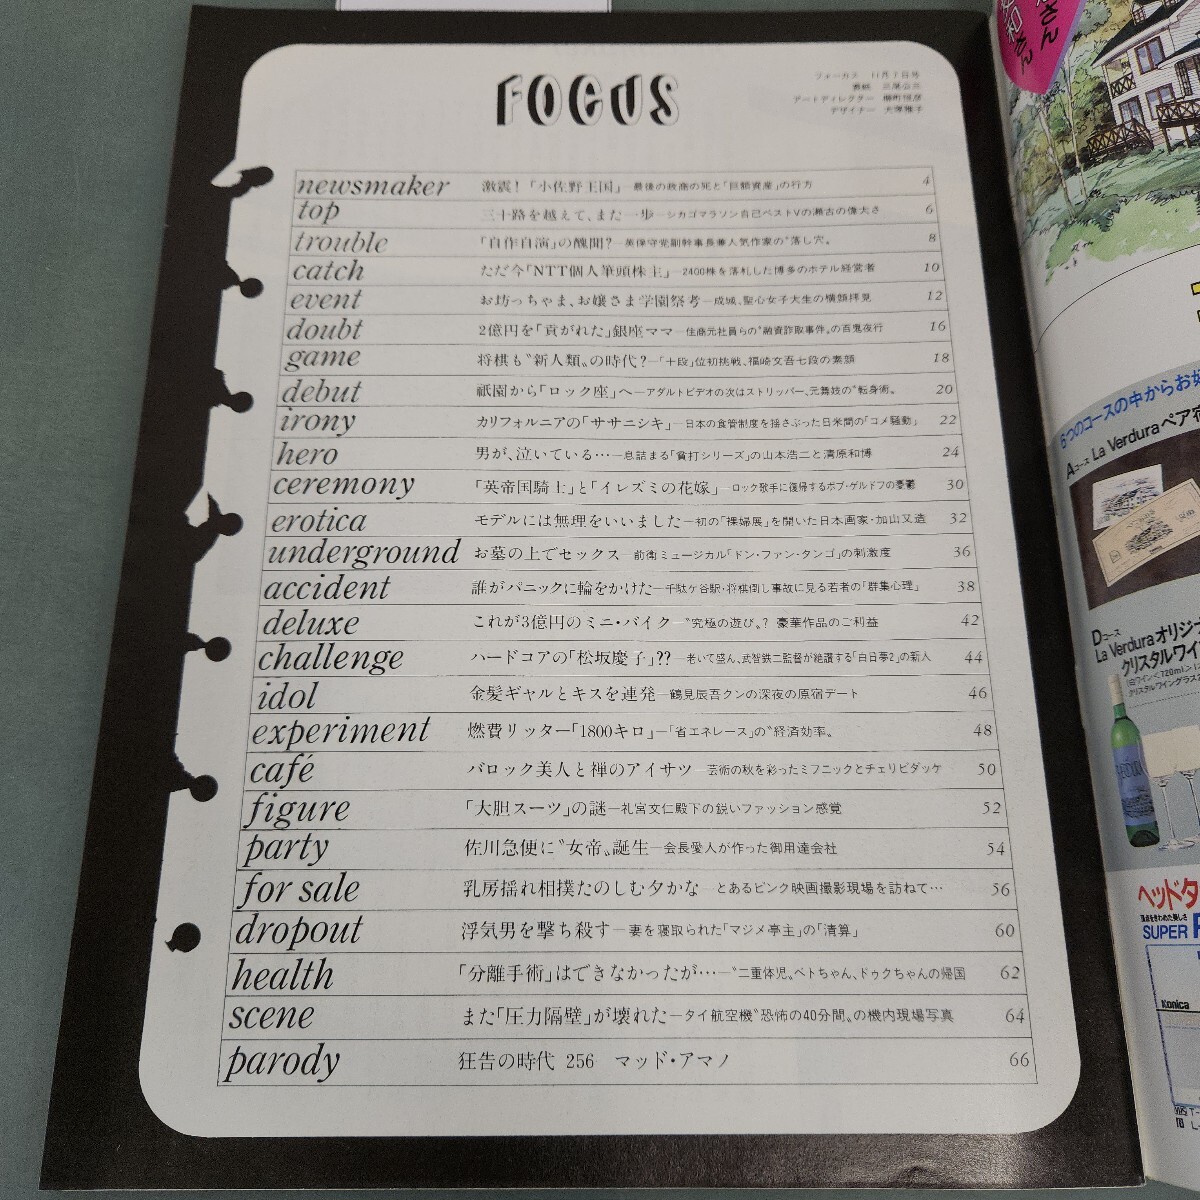 FOCUS
フォーカス 11月7日号
表紙 三尾公三
アートディレクター
デザイナー 大塚雅子
newsmaker 激震！「小佐野王国」―最後の政商の死と「巨額資産」の行方 4
top 三十路を越えて、また一歩―シカゴマラソン自己ベストVの瀬古の偉大さ 6
trouble 「自作自演」の醜聞？―英保守党副幹事長兼人気作家の〝落し穴〟 8
catch ただ今「NTT個人筆頭株主」―2400株を落札した博多のホテル経営者 10
event お坊っちゃま、お嬢さま学園祭考―成城、聖心女子大生の横顔拝見 12
doubt 2億円を「貢がれた」銀座ママ―住商元社員らの〝融資詐取事件〟の百鬼夜行 16
game 将棋も〝新人類〟の時代？―「十段」位初挑戦、福崎文吾七段の素顔 18
debut 祇園から「ロック座」へ―アダルトビデオの次はストリッパー、元舞妓の〝転身術〟 20
irony カリフォルニアの「ササニシキ」―日本の食管制度を揺さぶった日米間の「コメ騒動」 22
hero 男が、泣いている…―息詰まる「貧打シリーズ」の山本浩二と清原和博 24
ceremony 「英帝国騎士」と「イレズミの花嫁」―ロック歌手に復帰するボブ・ゲルドフの憂鬱 30
erotica モデルには無理をいいました―初の「裸婦展」を開いた日本画家・加山又造 32
underground お墓の上でセックス―前衛ミュージカル「ドン・ファン・タンゴ」の刺激度 36
accident 誰がパニックに輪をかけた―千駄ケ谷駅・将棋倒し事故に見る若者の「群集心理」 38
deluxe これが3億円のミニ・バイク―〝究極の遊び〟？ 豪華作品のご利益 42
challenge ハードコアの「松坂慶子」??―老いて盛ん、武智鉄二監督が絶讃する「白日夢2」の新人 44
idol 金髪ギャルとキスを連発―鶴見辰吾クンの深夜の原宿デート 46
experiment 燃費リッター「1800キロ」―「省エネレース」の〝経済効率〟 48
café バロック美人と禅のアイサツ―芸術の秋を彩ったミフニックとチェリビダッケ 50
figure 「大胆スーツ」の謎―礼宮文仁殿下の鋭いファッション感覚 52
party 佐川急便に〝女帝〟誕生―会長愛人が作った御用達会社 54
for sale 乳房揺れ相撲たのしむ夕かな―とあるピンク映画撮影現場を訪ねて… 56
dropout 浮気男を撃ち殺す―妻を寝取られた「マジメ亭主」の「清算」 60
health 「分離手術」はできなかったが…―〝二重体児〟ベトちゃん、ドゥクちゃんの帰国 62
scene また「圧力隔壁」が壊れた―タイ航空機〝恐怖の40分間〟の機内現場写真 64
parody 狂告の時代 256 マッド・アマノ 66
さん
和さん
6つのコースの中からお好
Aコース La Verduraペア宿
Dコース
La Verduraオリジナ
クリスタルワイ
(白ワイン<720ml>
クリスタルワイングラス2
ヘッドタ
SUPER
Konica